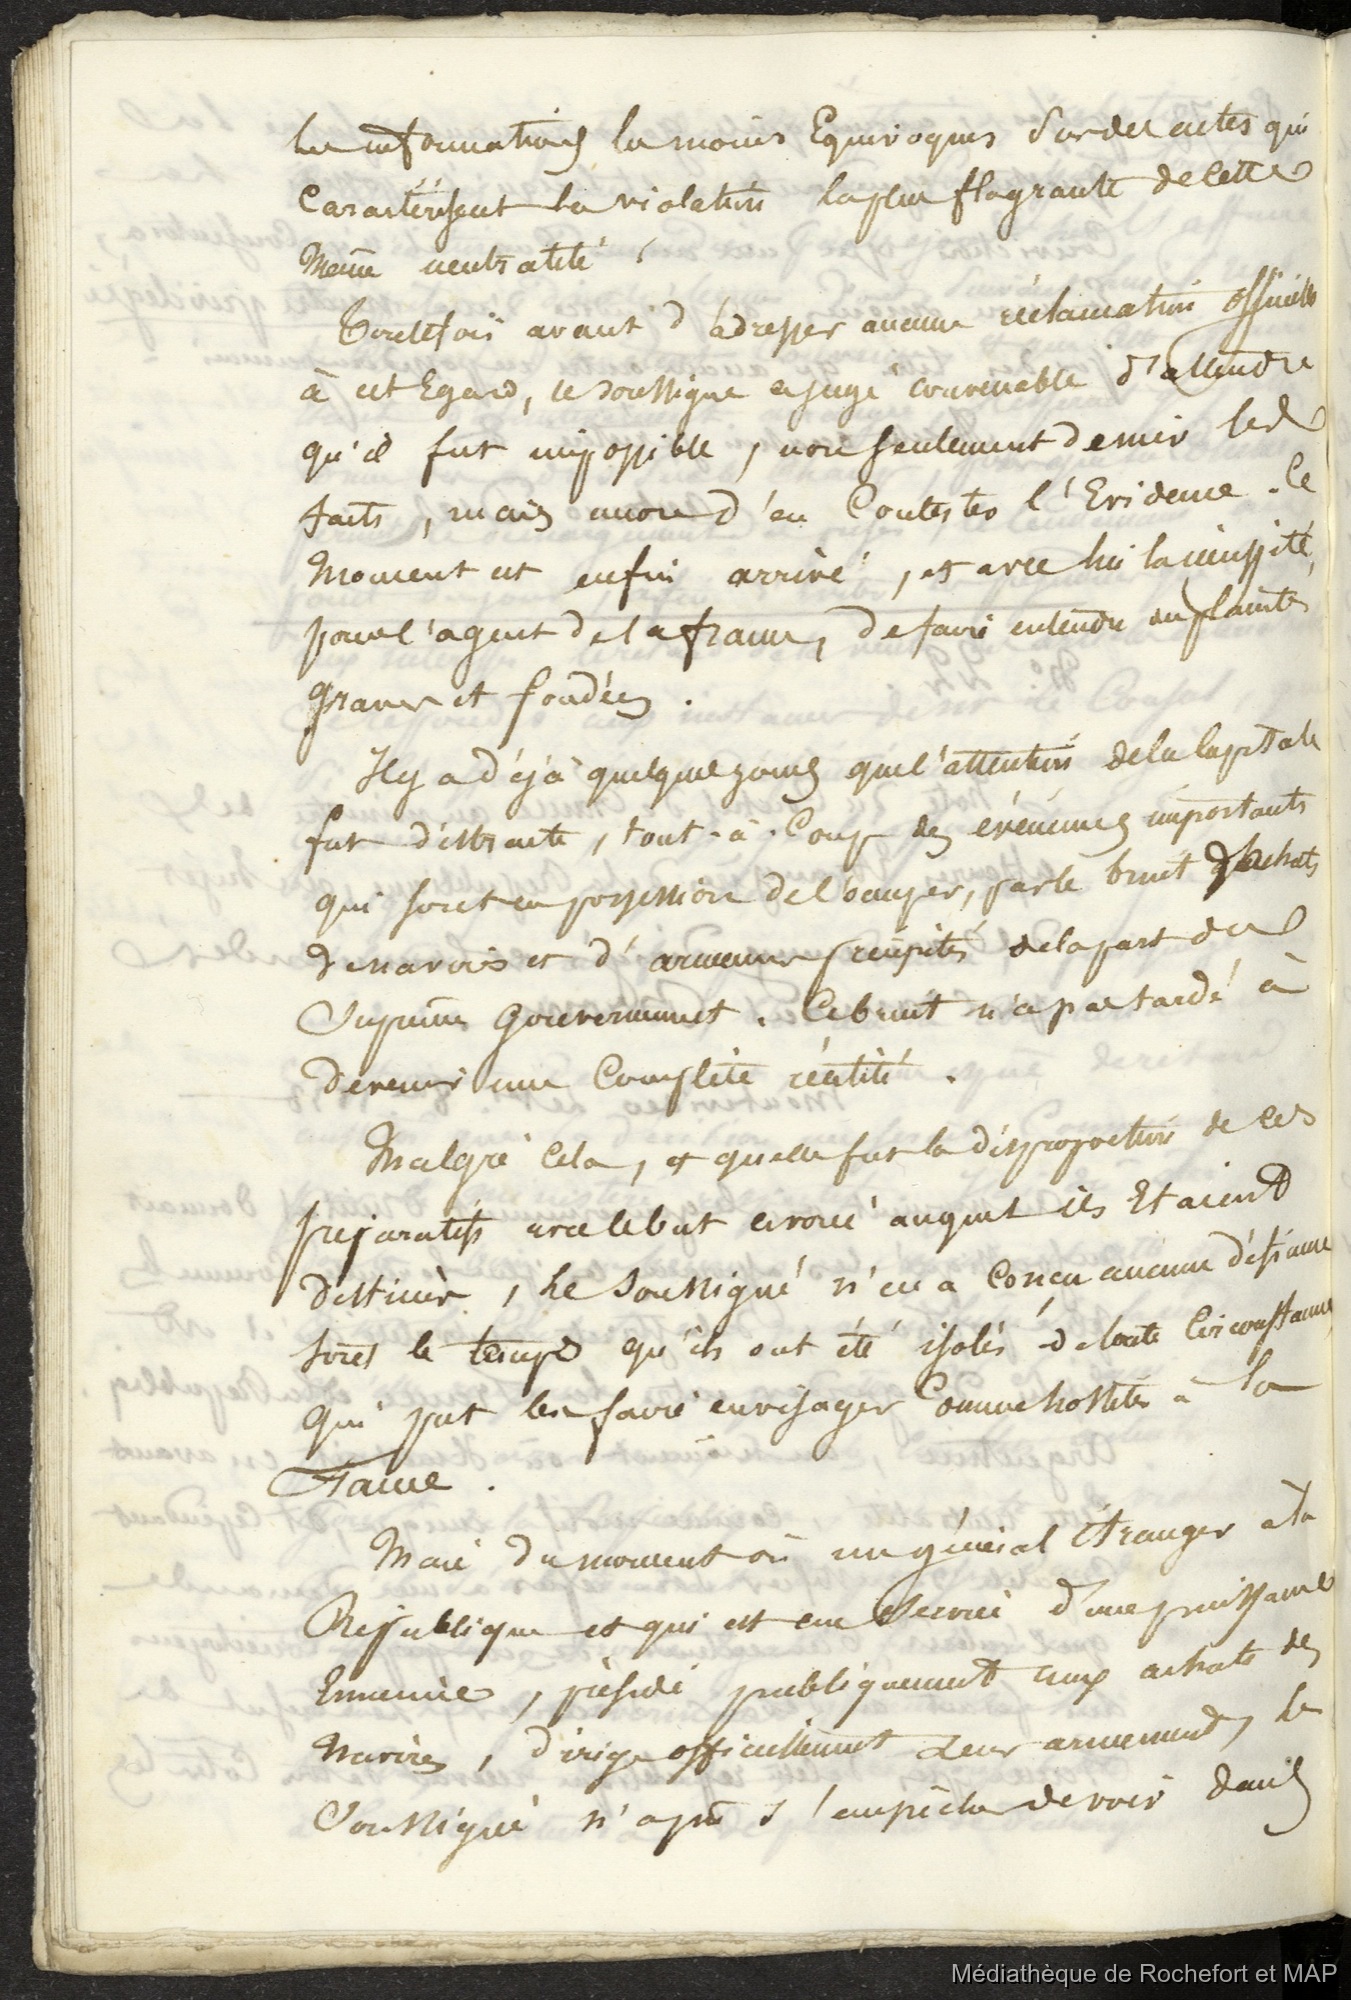 les informations les moins Equivoques sur des actes qui
Caractérisent la violation la plus flagrante de cette
Même neutralité.
Toutefois avant d'adresser aucune réclamation officielle
à cet Egard, le soussigné a jugé convenable d'attendre
qu'il fut impossible, non seulement de nier les
faits, mais encore d'en Contester l'Evidence. Ce
Moment est enfin arrivé, et avec lui la nécessité,
pour l'agent de la france, de faire entendre des plaintes
graves et fondées.
Il y a déjà quelques jours que l'attention de la Capitale
fut distraite, tout-à-Coup des événemens importants
qui sont en possession de l'occuper, par le bruit d'achats
de navires et d'armemens précipités de la part du
Suprême Gouvernement. Ce bruit n'a pas tardé à
devenir une Complète réalité.
Malgré Cela, et quelle fut la disproportion de ces
préparatifs avec le but avoué auquel ils Etaient
destinés, le soussigné n'en a Concu aucune défiance
tout le temps qu'ils ont été isolés de toute Circonstance
qui put les faire envisager Comme hostiles à la
France.
Mais du moment où un général étranger à la
République et qui est au Service d'une puissance
Ennemie, préside publiquement aux achats des
Navires, dirige officiellement leur armement, le
Soussigné n'a pu s'empêcher de voir dans
Médiathèque de Rochefort et MAP